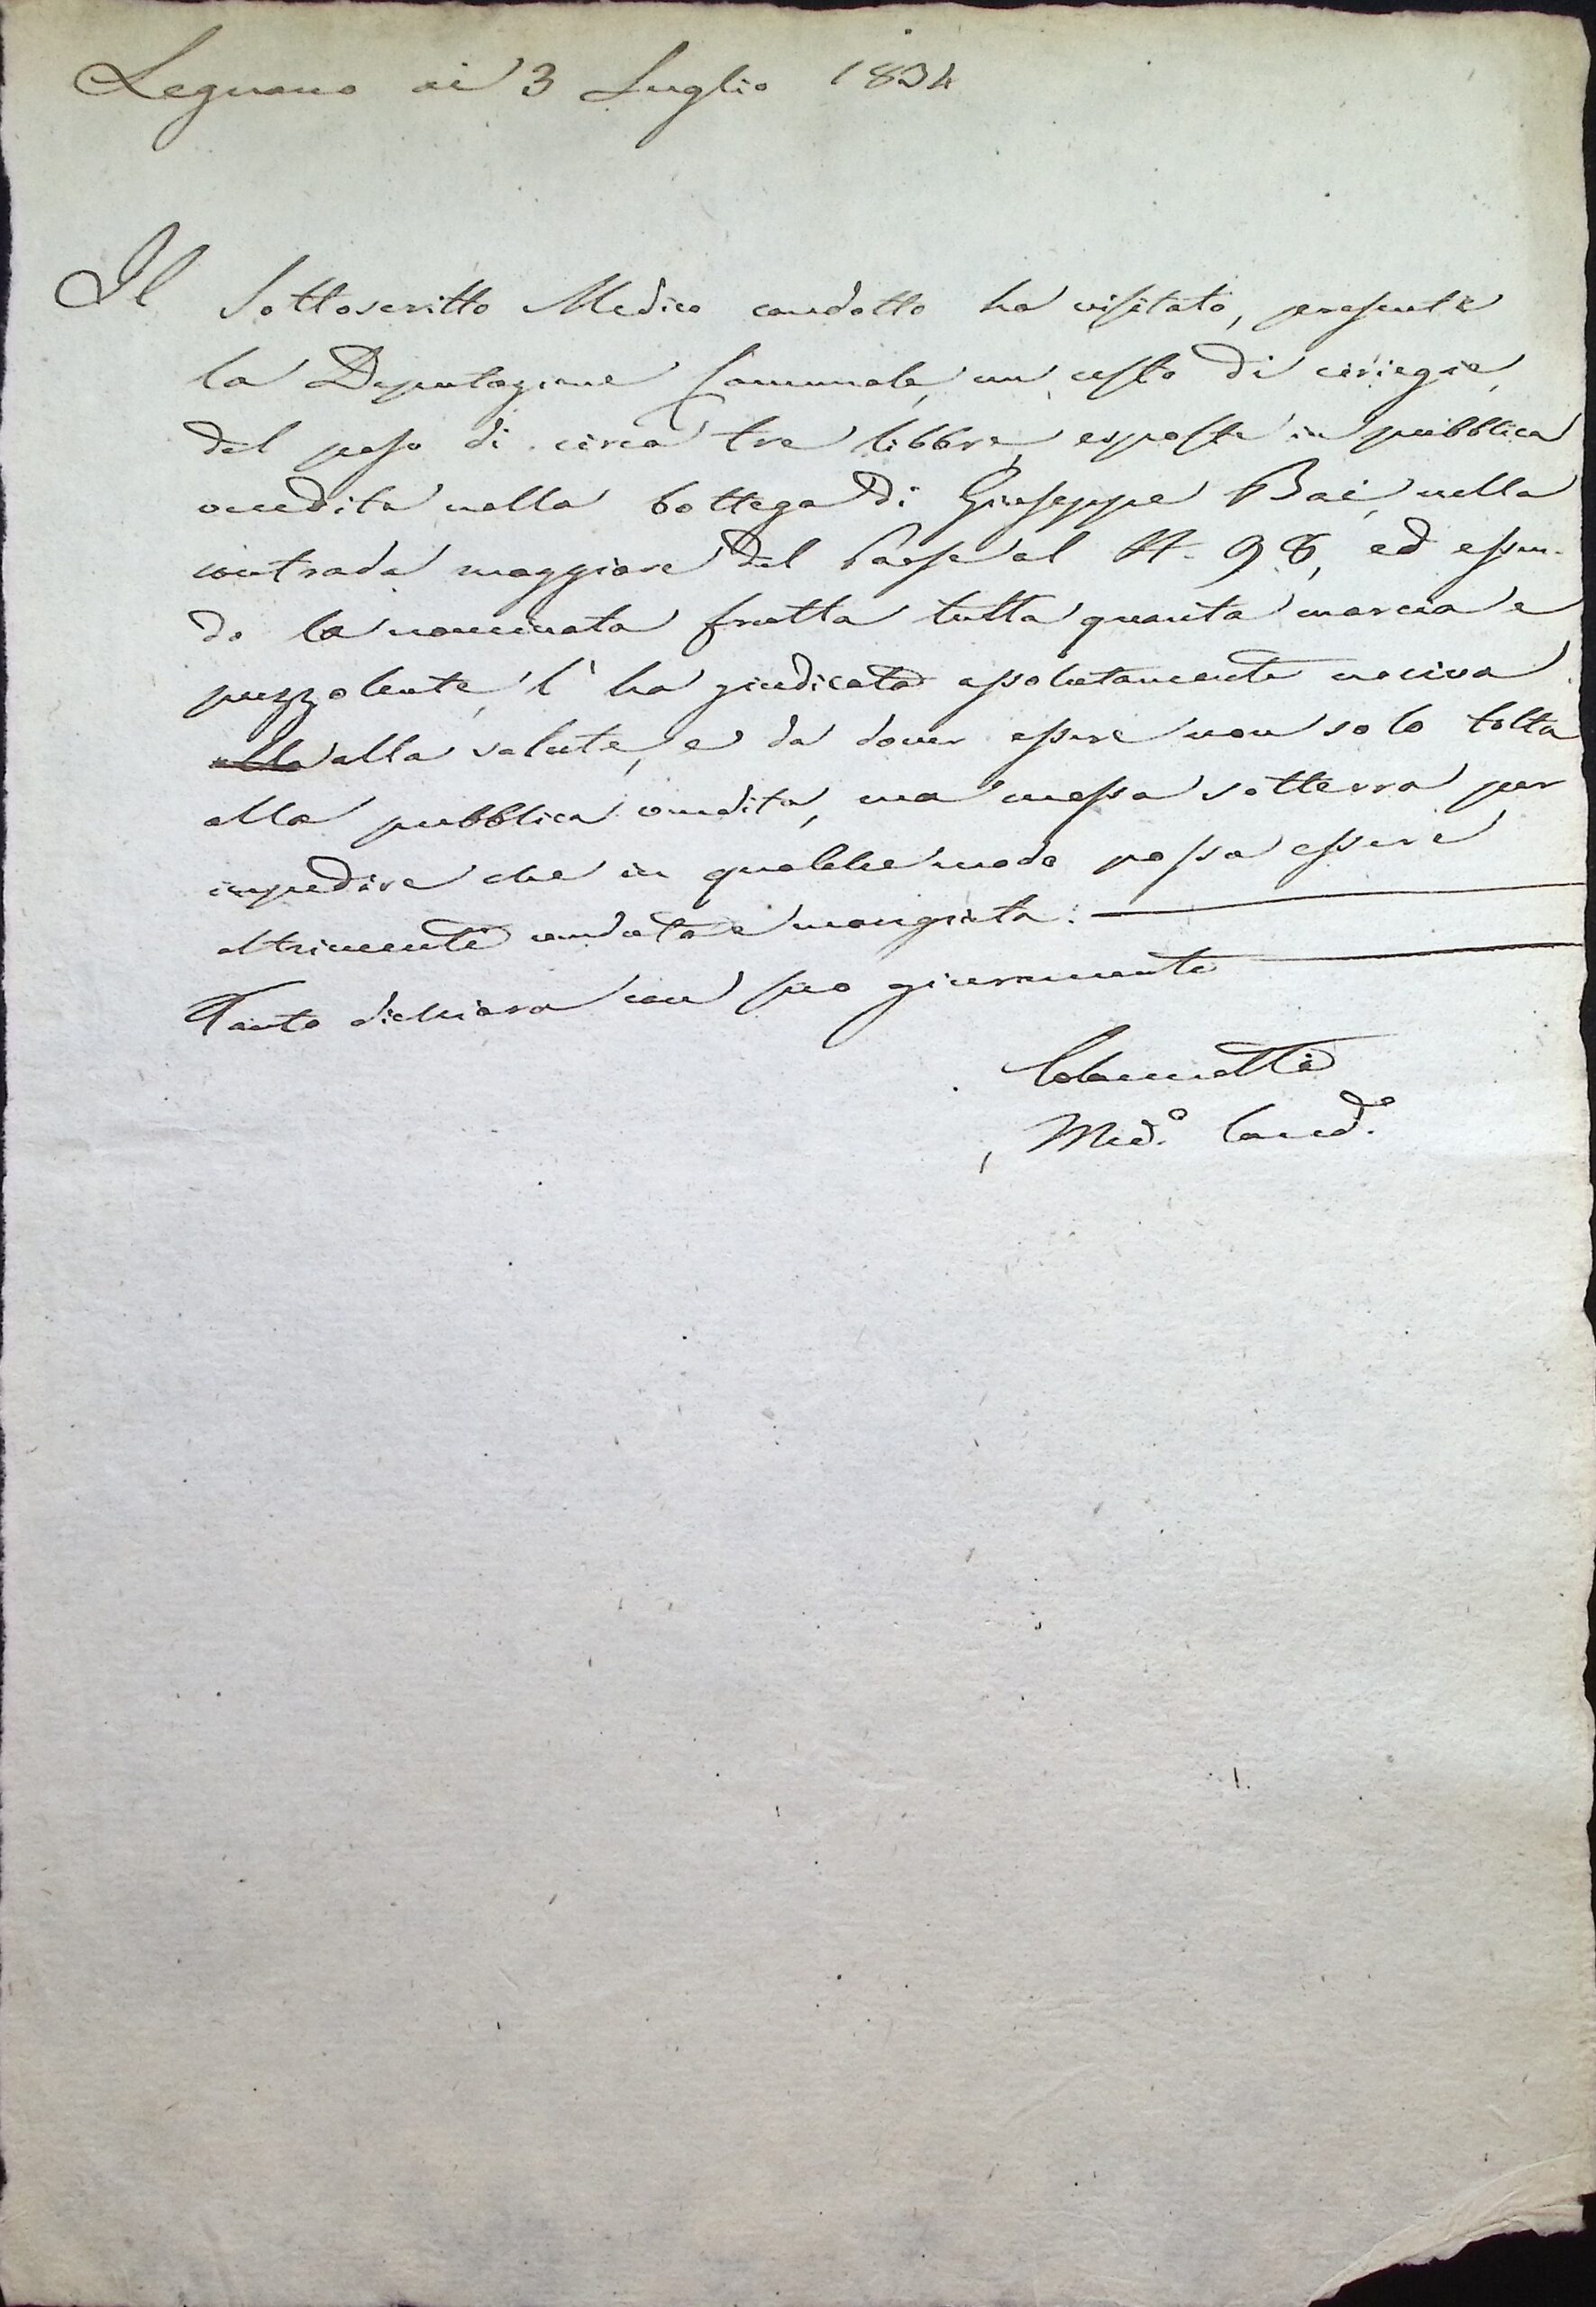 Legnano ai 3 Luglio 1834
Il Sottoscritto Medico condotto ha visitato, presente
la Deputazione Comunale, un cesto di ciriegie,
del peso di circa tre libbre, esposte in pubblica
vendita nella bottega di Giuseppe Bai, nella
contrada maggiore del Paese al N. 98, ed essen-
do la nominata frutta tutta quanta marcia e
puzzolente, l'ha giudicata assolutamente nociva
alla salute, e da dover essere non solo tolta
alla pubblica vendita, ma messa sotterra per
impedire che in qualche modo possa essere
altrimenti venduta e mangiata.
Tanto dichiara con suo giuramento
Med.º Cond.º